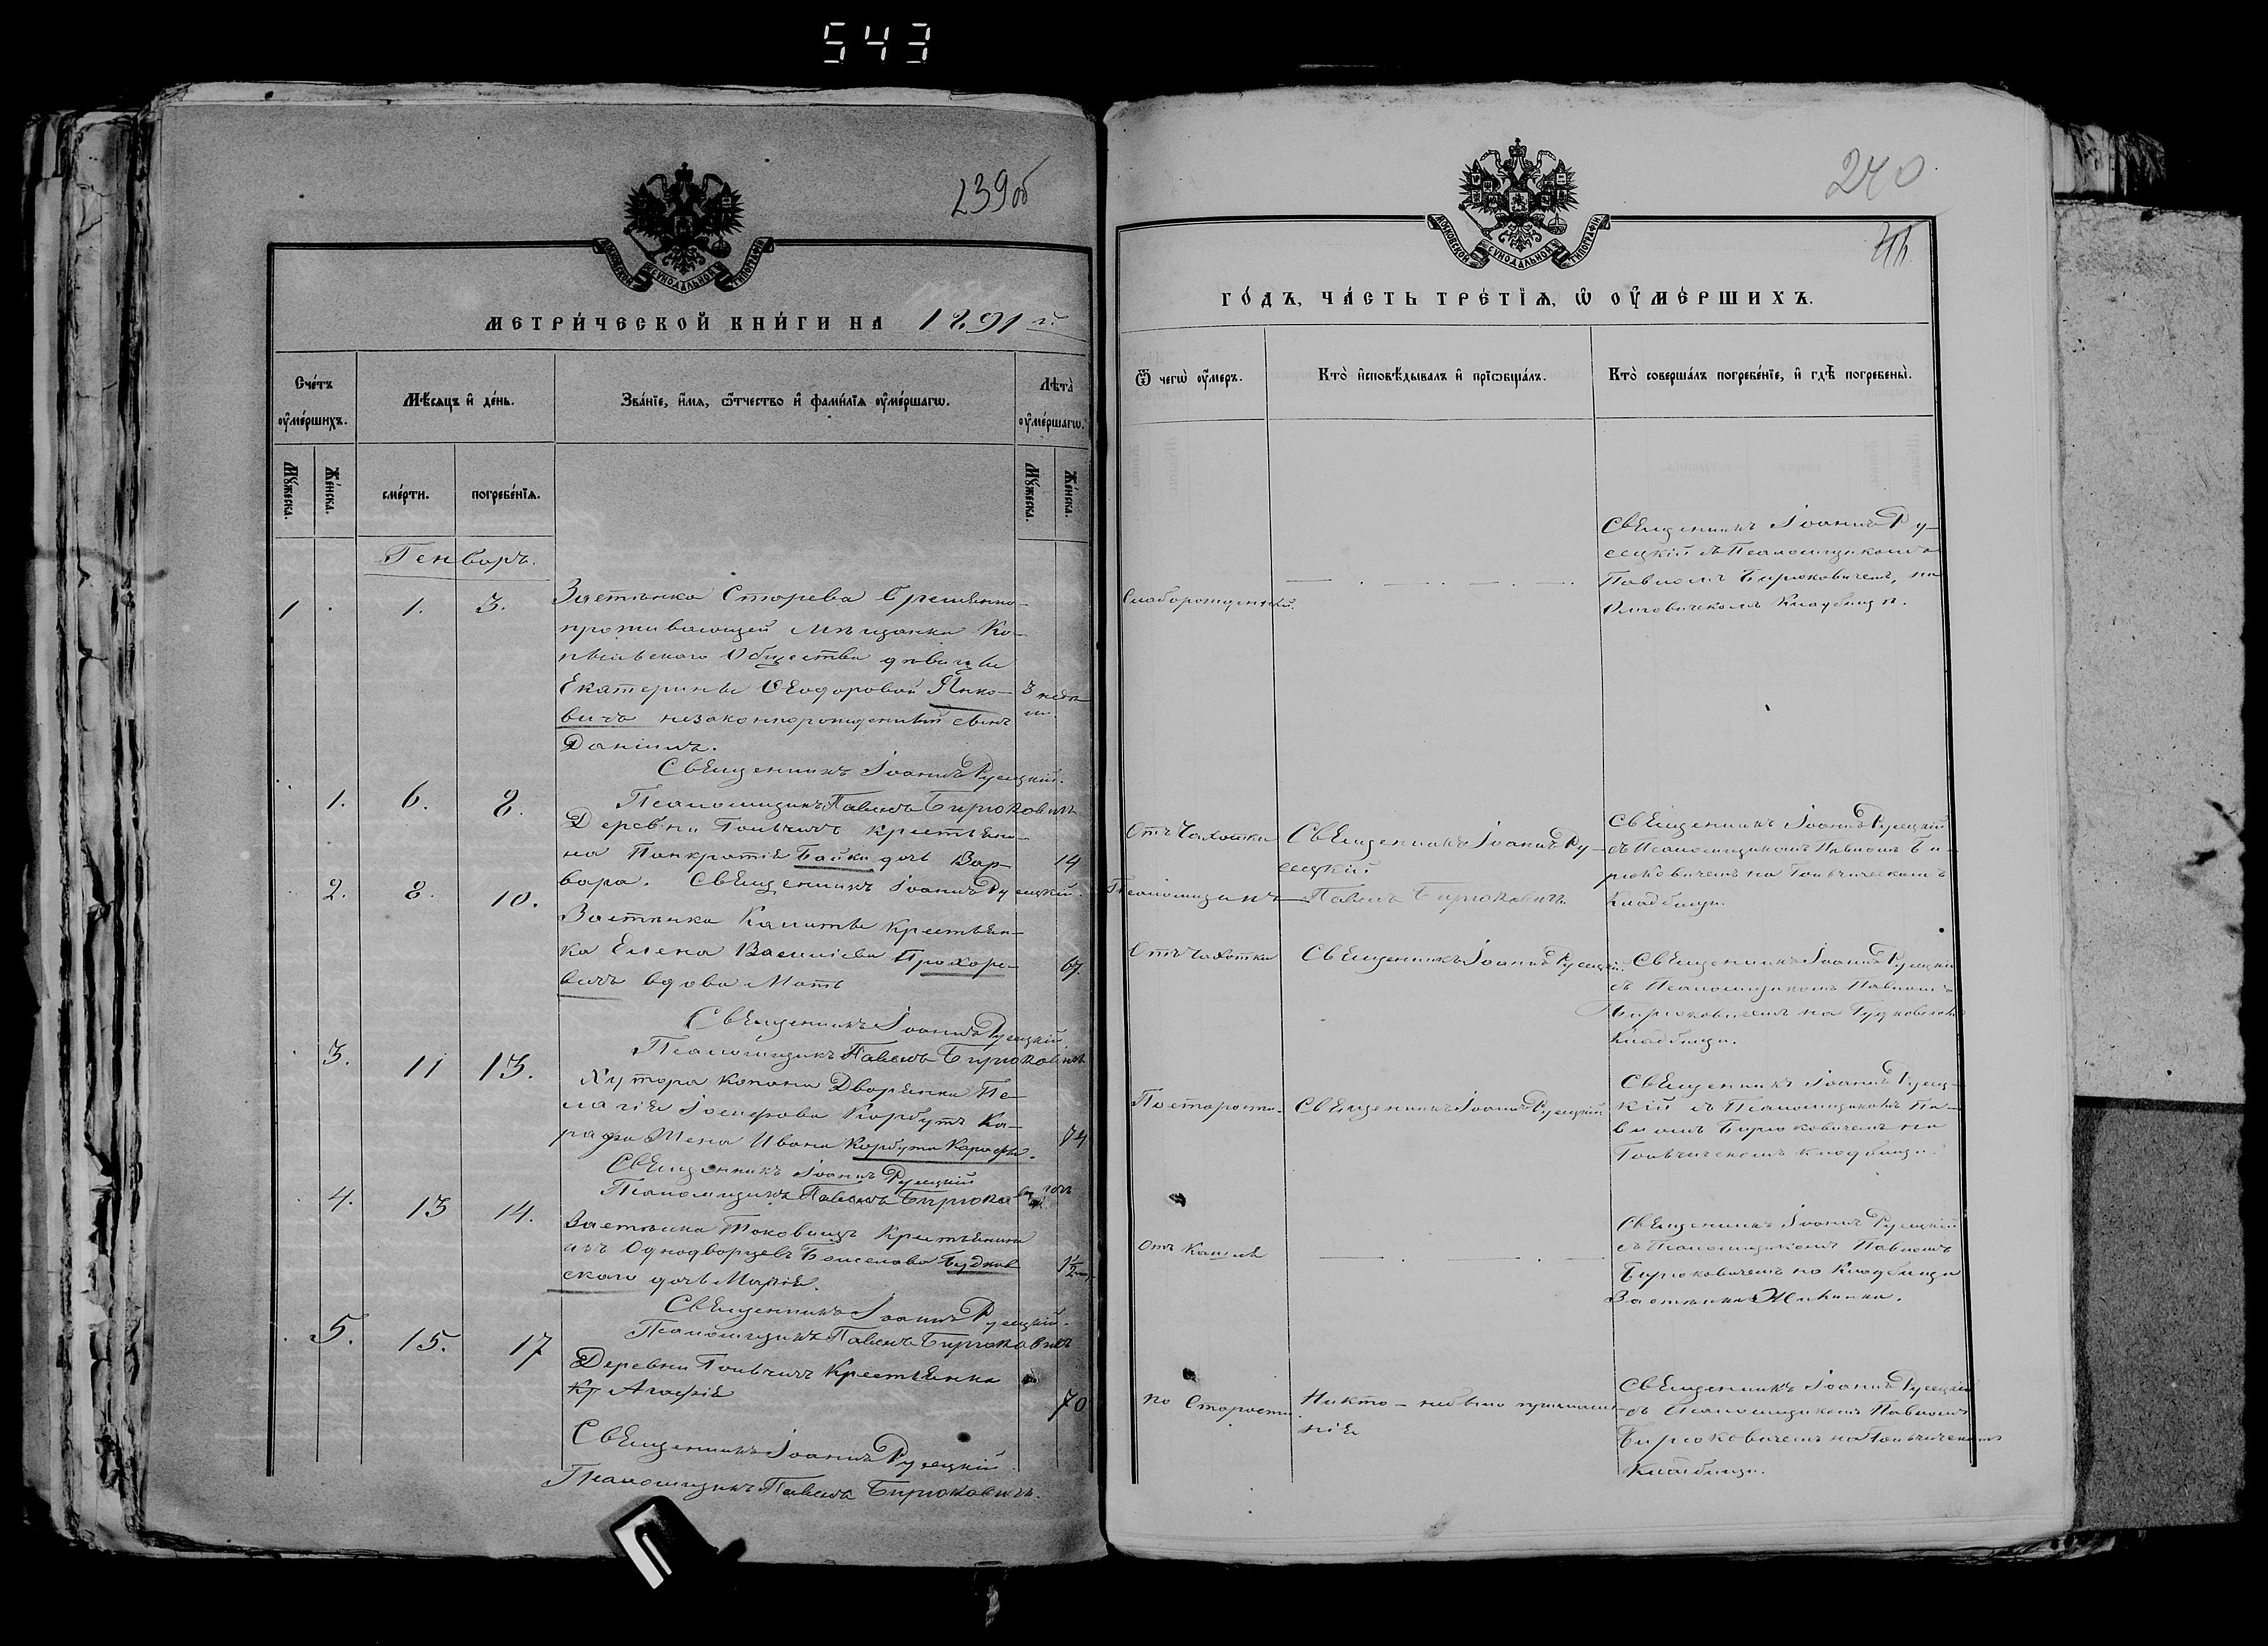 543
239об
МОСКОВСКОЙ СѴНОДАЛЬНОЙ ТИПОГРАФІИ
МЕТРИ́ЧЕСКОЙ КНИ́ГИ НА 1891 й
Сче́тъ ᲂу҆ме́ршихъ.
Мѣ́сяцъ и҆ де́нь.
Зва́нїе, и҆́мѧ, ѻ҆́тчество и҆ фами́лїѧ ᲂу҆ме́ршагѡ.
Лѣ́та ᲂу҆ме́ршагѡ.
Мꙋ́жеска.
Же́нска.
сме́рти.
погребе́нїѧ.
Мꙋ́жеска.
Же́нска.
Генварь.
1 1. 3.
Застѣнка Старева временно-
проживающей мѣщанки Ко-
Общества дѣвицы
Екатерины Ѳеодоровой Янко-
вичъ незаконнорожденный сынъ
Даніилъ.
3 недѣ
ли.
Священникъ Іоаннъ Русецкій.
Псаломщикъ Павелъ Бирюковичъ
1. 6. 8.
Деревни крестьяни-
на Панкратія Байки дочь Вар-
вара. Священникъ Іоаннъ Русецкій.
14
Псаломщикъ Павелъ Бирюковичъ.
2. 8. 10.
Застѣнка крестьян-
ка Елена Василіева Прохоро-
вичъ вдова Мать
67.
Священникъ Іоаннъ Русецкій.
Псаломщикъ Павелъ Бирюковичъ
3. 11 13.
Хутора Дворянка Пе-
лагія Іосифова Корбутъ Ка-
рафа Жена Ивана Корбута Карафы.
74
Священникъ Іоаннъ Русецкій
Псаломщикъ Павелъ Бирюковичъ
4. 13 14.
Застѣнка Крестьянина
изъ Однодворцевъ Болеслава Будков
скаго дочь Марія.
1½
Священникъ Іоаннъ Русецкій.
Псаломщикъ Павелъ Бирюковичъ
5. 15. 17
Деревни Крестьянка
Агафія
70
Священникъ Іоаннъ Русецкій
Псаломщикъ Павелъ Бирюковичъ.
240
МОСКОВСКОЙ СѴНОДАЛЬНОЙ ТИПОГРАФІИ
ГО́ДЪ, ЧА́СТЬ ТРЕ́ТЇѦ, Ѡ҆ ᲂУ҆МЕ́РШИХЪ.
Ѿ чегѡ̀ ᲂу҆́меръ.
Кто̀ и҆сповѣ́дывалъ и҆ прїѡбща́лъ.
Кто̀ соверша́лъ погребе́нїе, и҆ гдѣ̀ погребены̀.
Слаборожденный.
Священникъ Іоаннъ Ру-
сецкій съ Псаломщикомъ
Павломъ Бирюковичемъ, на
Кладбищѣ.
Отъ Чахотки
Священникъ Іоаннъ Ру-
сецкій
Священникъ Іоаннъ Русецкій
съ Псаломщикомъ Павломъ Би-
рюковичемъ на
Кладбищѣ.
Отъ Чахотки
Священникъ Іоаннъ Русецкій.
Священникъ Іоаннъ Русецкій
съ Псаломщикомъ Павломъ
Бирюковичемъ на
Кладбищѣ.
По старости.
Священникъ Іоаннъ Русецкій
Священникъ Іоаннъ Русец-
кій съ Псаломщикомъ Па-
вломъ Бирюковичемъ на
кладбищѣ.
Отъ Кашля
Священникъ Іоаннъ Русецкій
съ Псаломщикомъ Павломъ
Бирюковичемъ на Кладбищѣ
Застѣнка
по Старости.
Никто – не было приглаше-
нія
Священникъ Іоаннъ Русецкій
съ Псаломщикомъ Павломъ
Бирюковичемъ на
Кладбищѣ.